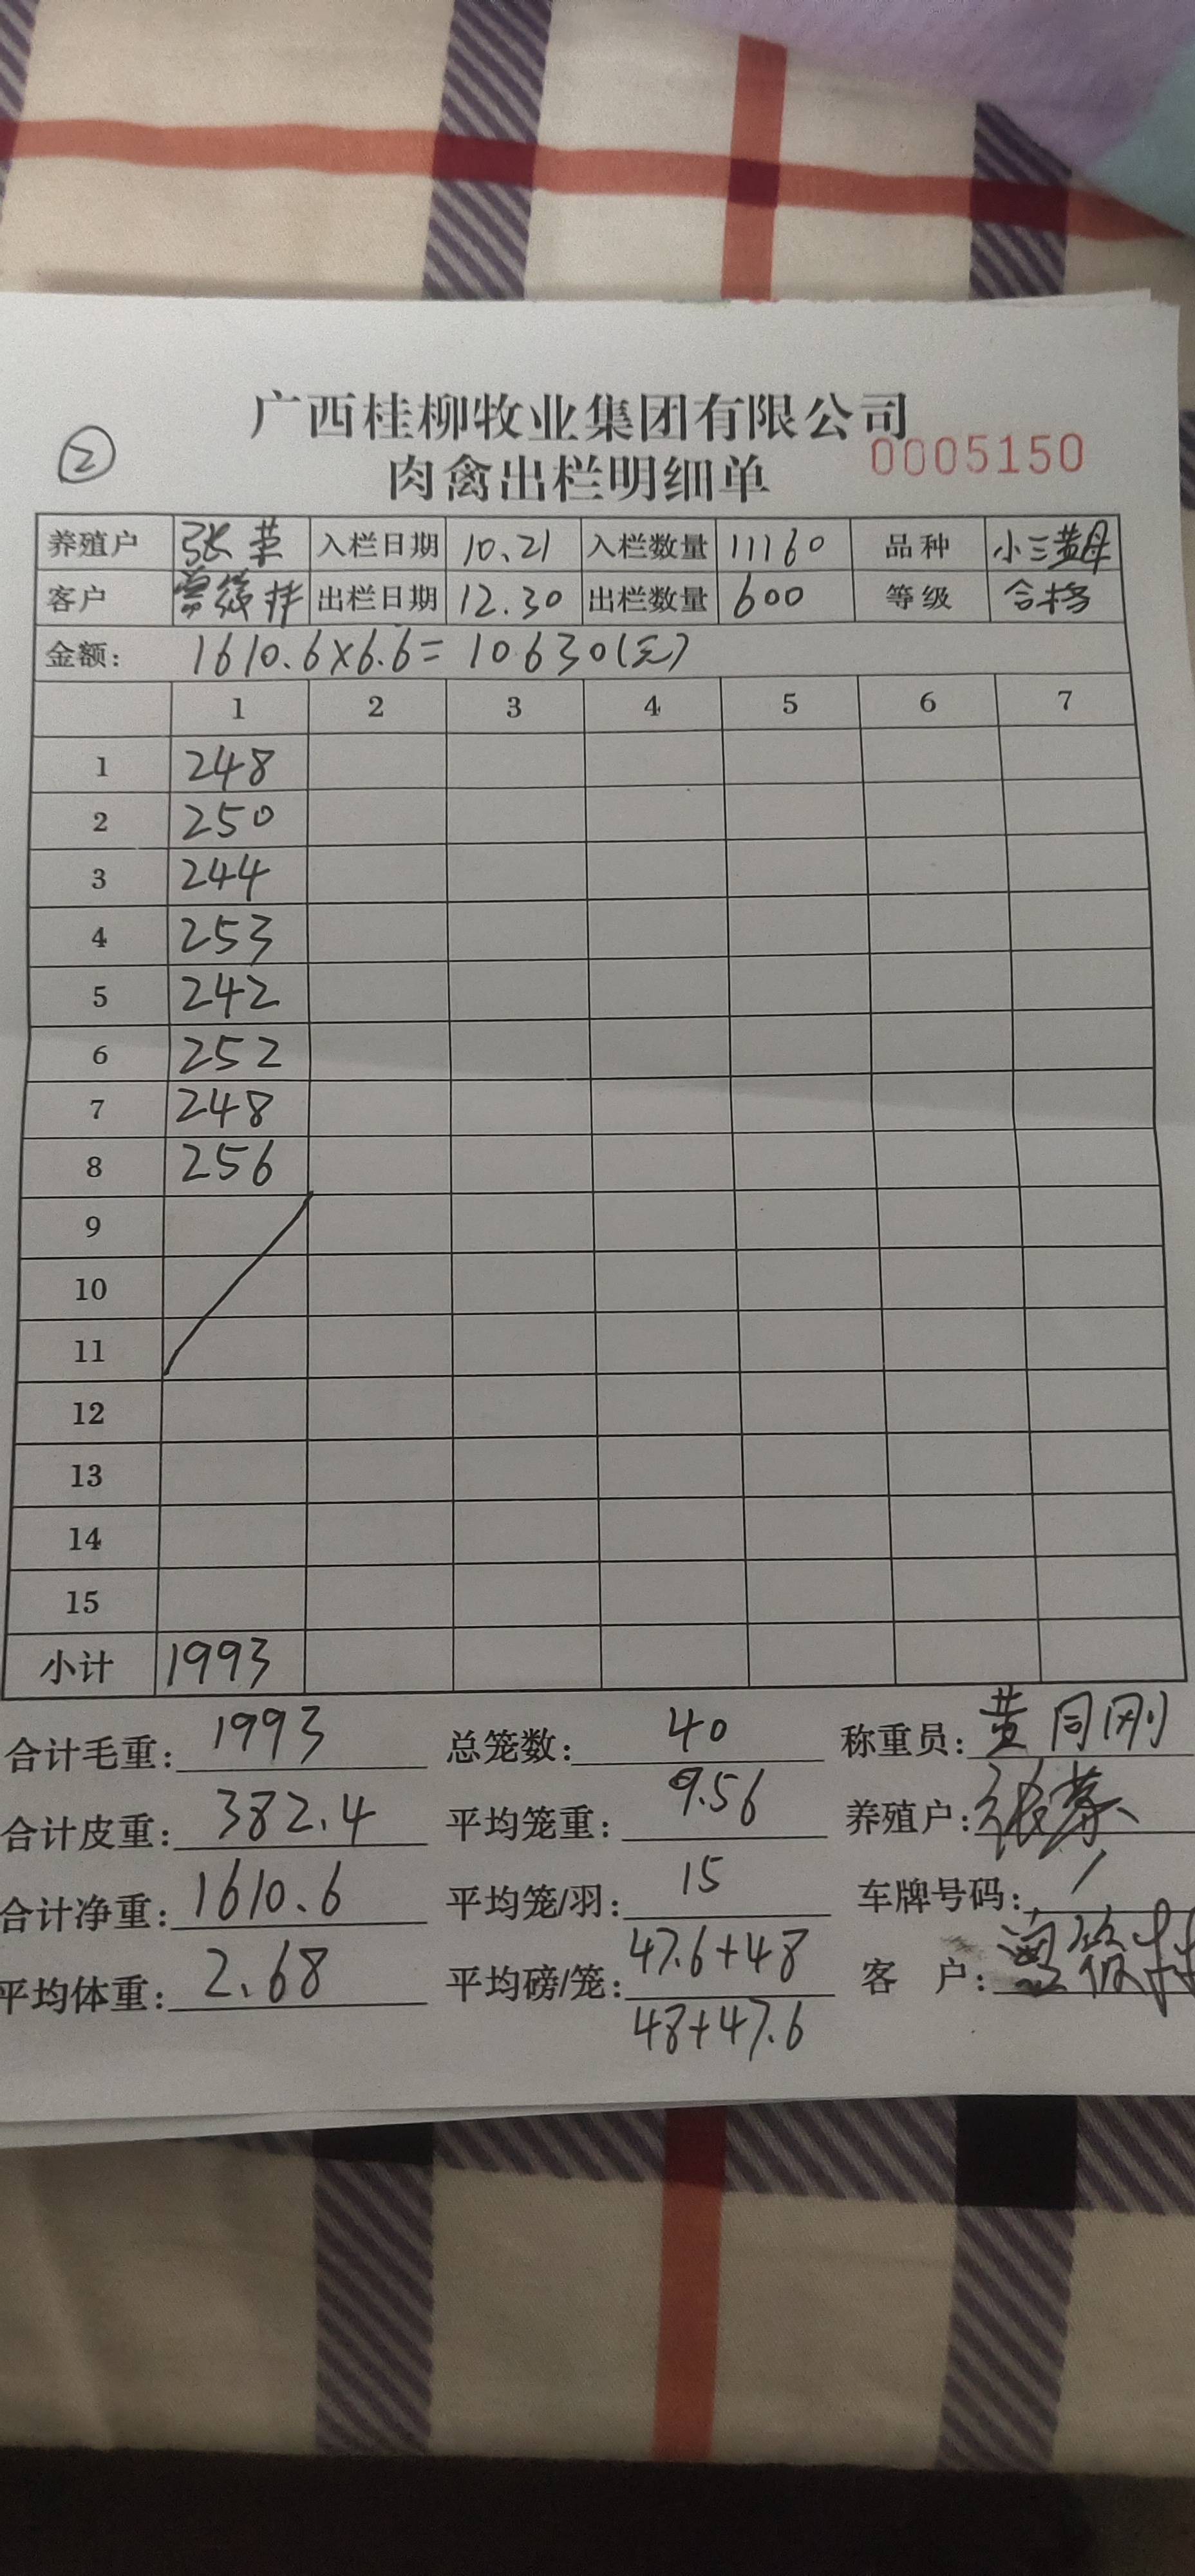 广西桂柳牧业集团有限公司
② 肉禽出栏明细单 0005150
养殖户 张 入栏日期 10.21 入栏数量 11160 品种 小三黄母
客户 出栏日期 12.30 出栏数量 600 等级 合格
金额: 1610.6×6.6=10630(元)
1 2 3 4 5 6 7
1 248
2 250
3 244
4 253
5 242
6 252
7 248
8 256
9
10
11
12
13
14
15
小计 1993
合计毛重: 1993 总笼数: 40 称重员: 黄同刚
合计皮重: 382.4 平均笼重: 9.56 养殖户: 张
合计净重: 1610.6 平均笼/羽: 15 车牌号码: /
平均体重: 2.68 平均磅/笼: 47.6+48 客户:
48+47.6